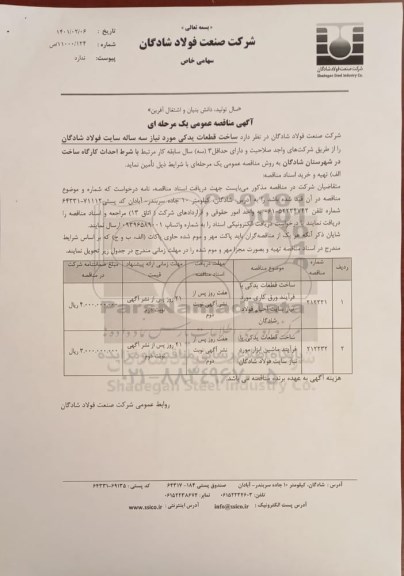 «بسمه تعالی»
شرکت صنعت فولاد شادگان
سهامی خاص
تاریخ : ۱۴۰۱/۰۲/۰۶
شماره : ۱۱۰۰۰/۱۲۴/ص
پیوست: ندارد
شرکت صنعت فولاد شادگان
Shadegan Steel Industry Co.
«سال تولید، دانش بنیان و اشتغال آفرین»
آگهی مناقصه عمومی یک مرحله ای
شرکت صنعت فولاد شادگان در نظر دارد ساخت قطعات یدکی مورد نیاز سه ساله سایت فولاد شادگان
را از طریق شرکت‌های واجد صلاحیت و دارای حداقل ۳ (سه) سال سابقه کار مرتبط با شرط احداث کارگاه ساخت
در شهرستان شادگان به روش مناقصه عمومی یک مرحله‌ای با شرایط ذیل تأمین نماید.
الف) تهیه و خرید اسناد مناقصه:
متقاضیان شرکت در مناقصه مذکور می‌بایست جهت دریافت اسناد مناقصه، نامه درخواست که شماره و موضوع
مناقصه در آن قید شده باشد را به آدرس شادگان، کیلومتر ۱۰ جاده سربندر-آبادان کد پستی
شماره تلفن واحد امور حقوقی و قراردادهای شرکت ( اتاق ۱۳) مراجعه و اسناد مناقصه را
دریافت نمایند یا درخواست دریافت الکترونیکی اسناد را به شماره واتساپ ارسال نمایند.
شایان ذکر آنکه هر یک از مناقصه‌گران باید پاکت مهر و موم شده حاوی پاکات (الف، ب و ج) که بر اساس شرایط
مندرج در اسناد مناقصه تهیه و بصورت مجزا مهر و موم شده را در مهلت زمانی مندرج در جدول زیر تحویل نمایند.
ردیف شماره مناقصه موضوع مناقصه مهلت دریافت اسناد مناقصه مهلت زمانی ارائه پیشنهاد قیمت مبلغ ضمانتنامه شرکت در مناقصه
۱ ساخت قطعات یدکی با فرآیند ورق کاری مورد نیاز سایت فولاد شادگان هفت روز پس از نشر آگهی نوبت دوم ۲۱ روز پس از نشر آگهی ریال
۲ ساخت قطعات یدکی با فرآیند ماشین ابزار مورد نیاز سایت فولاد شادگان هفت روز پس از نشر آگهی نوبت دوم ۲۱ روز پس از نشر آگهی ریال
ParsNamadData
۰۲۱-۸۸۳۴۹۶۷۰-۵
هزینه آگهی به عهده برنده مناقصه می باشد.
روابط عمومی شرکت صنعت فولاد شادگان
آدرس : شادگان، کیلومتر ۱۰ جاده سربندر- آبادان صندوق پستی ۱۸۴-۶۴۳۱۷ کد پستی: ۶۹۱۳۵-۶۴۳۳۱
آدرس پست الکترونیک : info@ssico.ir آدرس اینترنتی : www.ssico.ir